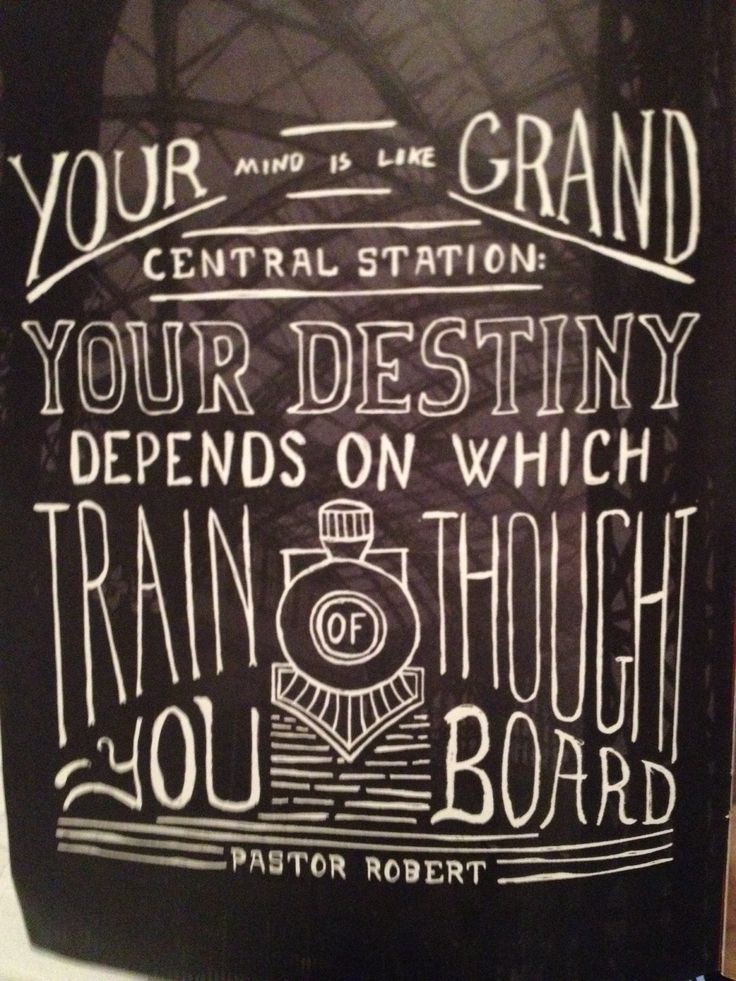 YOUR MIND IS LIKE GRAND
CENTRAL STATION:
YOUR DESTINY
DEPENDS ON WHICH
TRAIN OF THOUGHT
YOU BOARD
PASTOR ROBERT